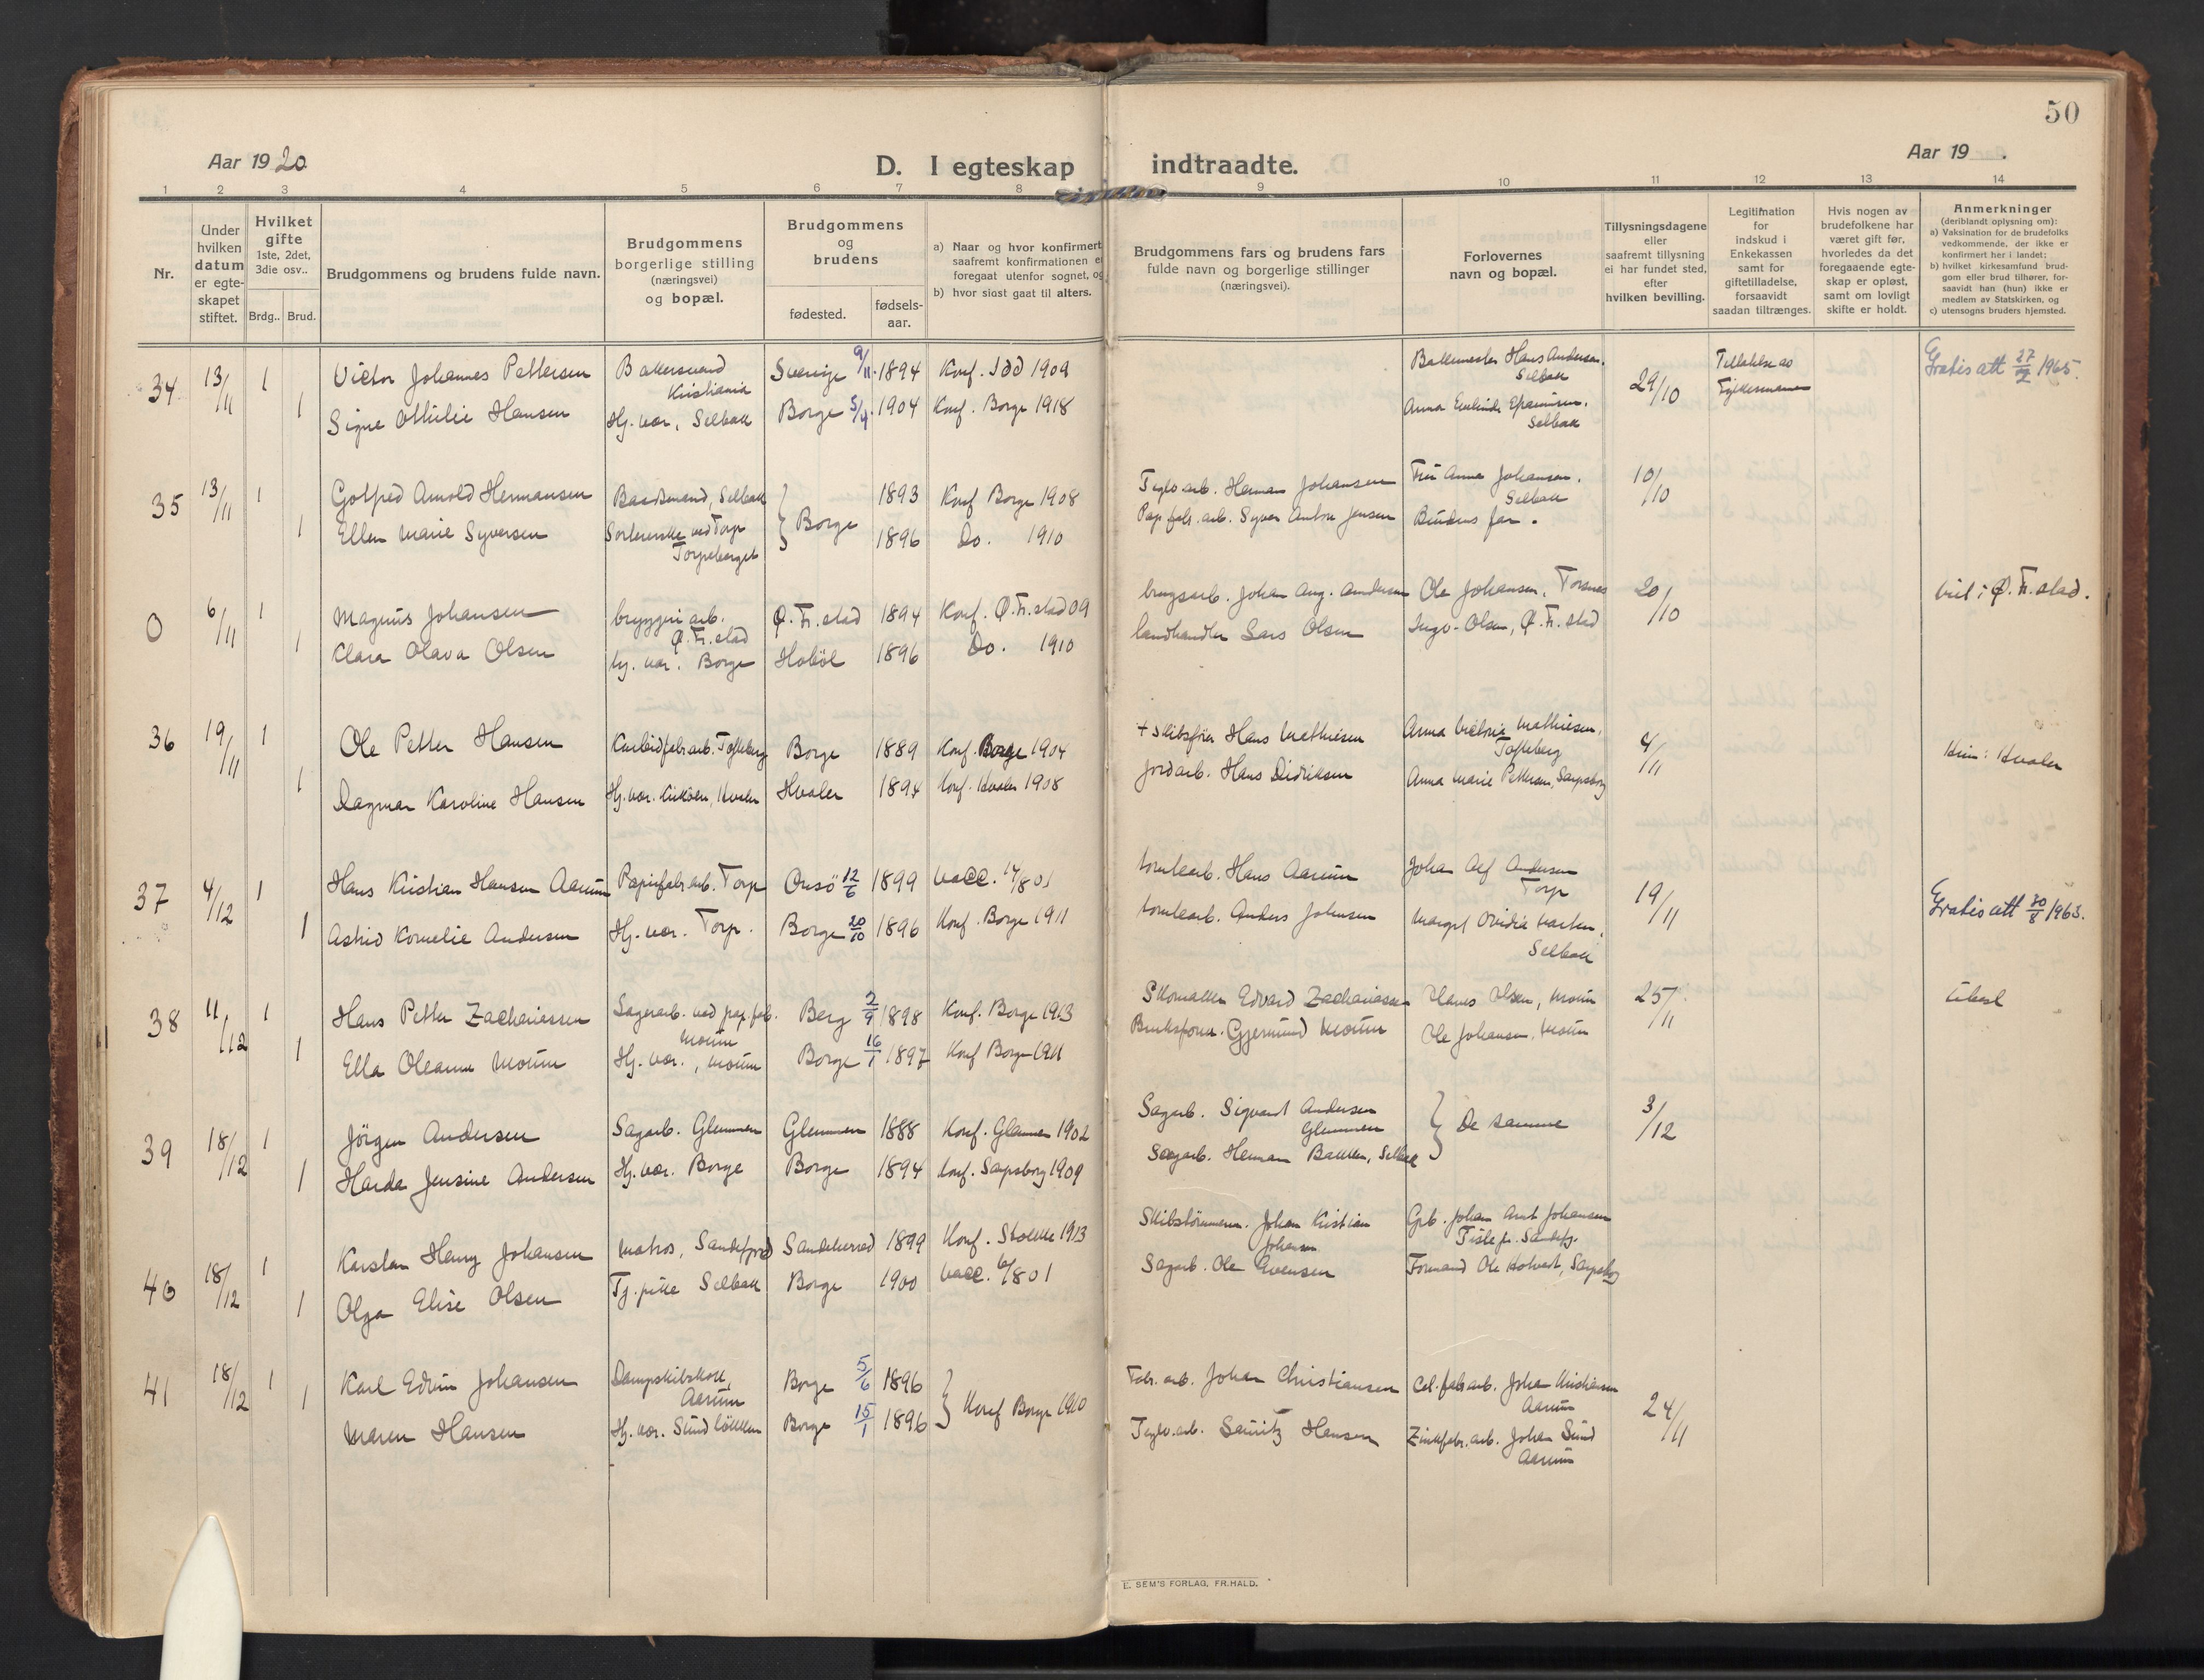 50
Aar 1920
D. I egteskap indtraadte.
Aar 19 .
1 2 3 4 5 6 7 8 9 10 11 12 13 14
Nr.
Under
hvilken
datum
er egte-
skapet
stiftet.
Hvilket
gifte
1ste, 2det,
3die osv..
Brdg.. Brud.
Brudgommens og brudens fulde navn.
Brudgommens
borgerlige stilling
(næringsvei)
og bopæl.
Brudgommens
og
brudens
fødested.
fødsels-
aar.
a) Naar og hvor konfirmert
saafremt konfirmationen er
foregaat utenfor sognet, og
b) hvor sidst gaat til alters.
Brudgommens fars og brudens fars
fulde navn og borgerlige stillinger
(næringsvei).
Forlovernes
navn og bopæl.
Tillysningsdagene
eller
saafremt tillysning
ei har fundet sted,
efter
hvilken bevilling.
Legitimation
for
indskud i
Enkekassen
samt for
giftetilladelse,
forsaavidt
saadan tiltrænges.
Hvis nogen av
brudefolkene har
været gift før,
hvorledes da det
foregaaende egte-
skap er opløst,
samt om lovligt
skifte er holdt.
Anmerkninger
(deriblandt oplysning om):
a) Vaksination for de brudefolks
vedkommende, der ikke er
konfirmert her i landet;
b) hvilket kirkesamfund brud-
gom eller brud tilhører, for-
saavidt han (hun) ikke er
medlem av Statskirken, og
c) utensogns bruders hjemsted.
34 13/11 1 Victor Johannes Pettersen Bakersvend Kristiania Sverige 9/11 1894 Konf. Idd 1909 Bakkemester Hans Andersen, Selbak 29/10 Tilladelse av Fylkesmannen Gratis att 27/2 1965.
1 Signe Othilie Hansen Hj. vær, Selbak Borge 5/4 1904 Konf. Borge 1918 Anna Selbak
35 13/11 1 Gotfred Arnold Hermansen Baadsmand, Selbak Borge 1893 Konf Borge 1908 Teglv. arb. Herman Johansen Fru Anna Johansen, Selbak 10/10
1 Ellen Marie Syversen Sortererske ved Torp Torpeberget 1896 Do. 1910 Pap. fabr. arb. Syver Anton Jensen Brudens far.
0 6/11 1 Magnus Johansen bryggeri arb. Ø. Fr. stad Ø. Fr. stad 1894 Konf. Ø. Fr. stad 09 brugsarb. Johan Aug. Andersen Ole Johansen, Torsnes 20/10 viet i Ø. Fr. stad.
1 Klara Olava Olsen hj. vær. Borge Hobøl 1896 Do. 1910 landhandler Lars Olsen Ingv. Olsen, Ø. Fr. stad
36 19/11 1 Ole Petter Hansen Karbidfabr. arb. Tofteberg Borge 1889 Konf. Borge 1904 + Skibsfører Hans Mathiesen Anna Mathiesen, Tofteberg 4/11 Hvaler
1 Dagmar Karoline Hansen Hj. vær. Kirkøen, Hvaler Hvaler 1894 Konf. Hvaler 1908 Jordarb. Hans Didriksen Anna Marie Pettersen, Sarpsborg
37 4/12 1 Hans Kristian Hansen Aarum Papirfabr. arb. Torp Onsø 12/6 1899 vacc. 14/8 01 tomtearb. Hans Aarum Johan Alf Andersen Torp 19/11 Gratis att 30/8 1963.
1 Astrid Kornelie Andersen Hj. vær. Torp. Borge 20/10 1896 Konf. Borge 1911 tomtearb. Anders Johnsen Margit Ovidia Selbak
38 11/12 1 Hans Petter Zachariassen Lagerarb. ved pap. fab. Moum Berg 2/9 1898 Konf. Borge 1913 Skomaker Edvard Zachariassen Hans Olsen, Moum 25/11
1 Ella Oleanne Moum Hj. vær., Moum Borge 16/1 1897 Konf Borge 1911 Gjermund Moum Ole Johansen, Moum
39 18/12 1 Jørgen Andersen Sagarb. Glemmen Glemmen 1888 Konf. Glemmen 1902 Sagarb. Sigvart Andersen Glemmen De samme 3/12
1 Jensine Andersen Hj. vær. Borge Borge 1894 Konf. Sarpsborg 1909 Sagarb. Herman Bakken, Selbak
40 18/12 1 Karsten Henry Johansen Matros, Sandefjord Sandeherred 1899 Konf. Stokke 1913 Skibstømmerm. Johan Kristian Johansen Johan Arnt Johansen
1 Olga Elise Olsen Tj. pike Selbak Borge 1900 vacc. 6/8 01 Sagarb. Ole Evensen Formand Ole Holvart, Sarpsborg
41 18/12 1 Karl Edvin Johansen Dampskibskok, Aarum Borge 5/6 1896 Konf Borge 1910 Fabr. arb. Johan Christiansen Cel. fabr. arb. Johan Kristiansen Aarum 24/11
1 Maren Hansen Hj. vær. Sundløkken Borge 15/1 1896 Teglv. arb. Hansen Zinkfabr. arb. Johan Sund Aarum
E. SEM'S FORLAG, FR.HALD.